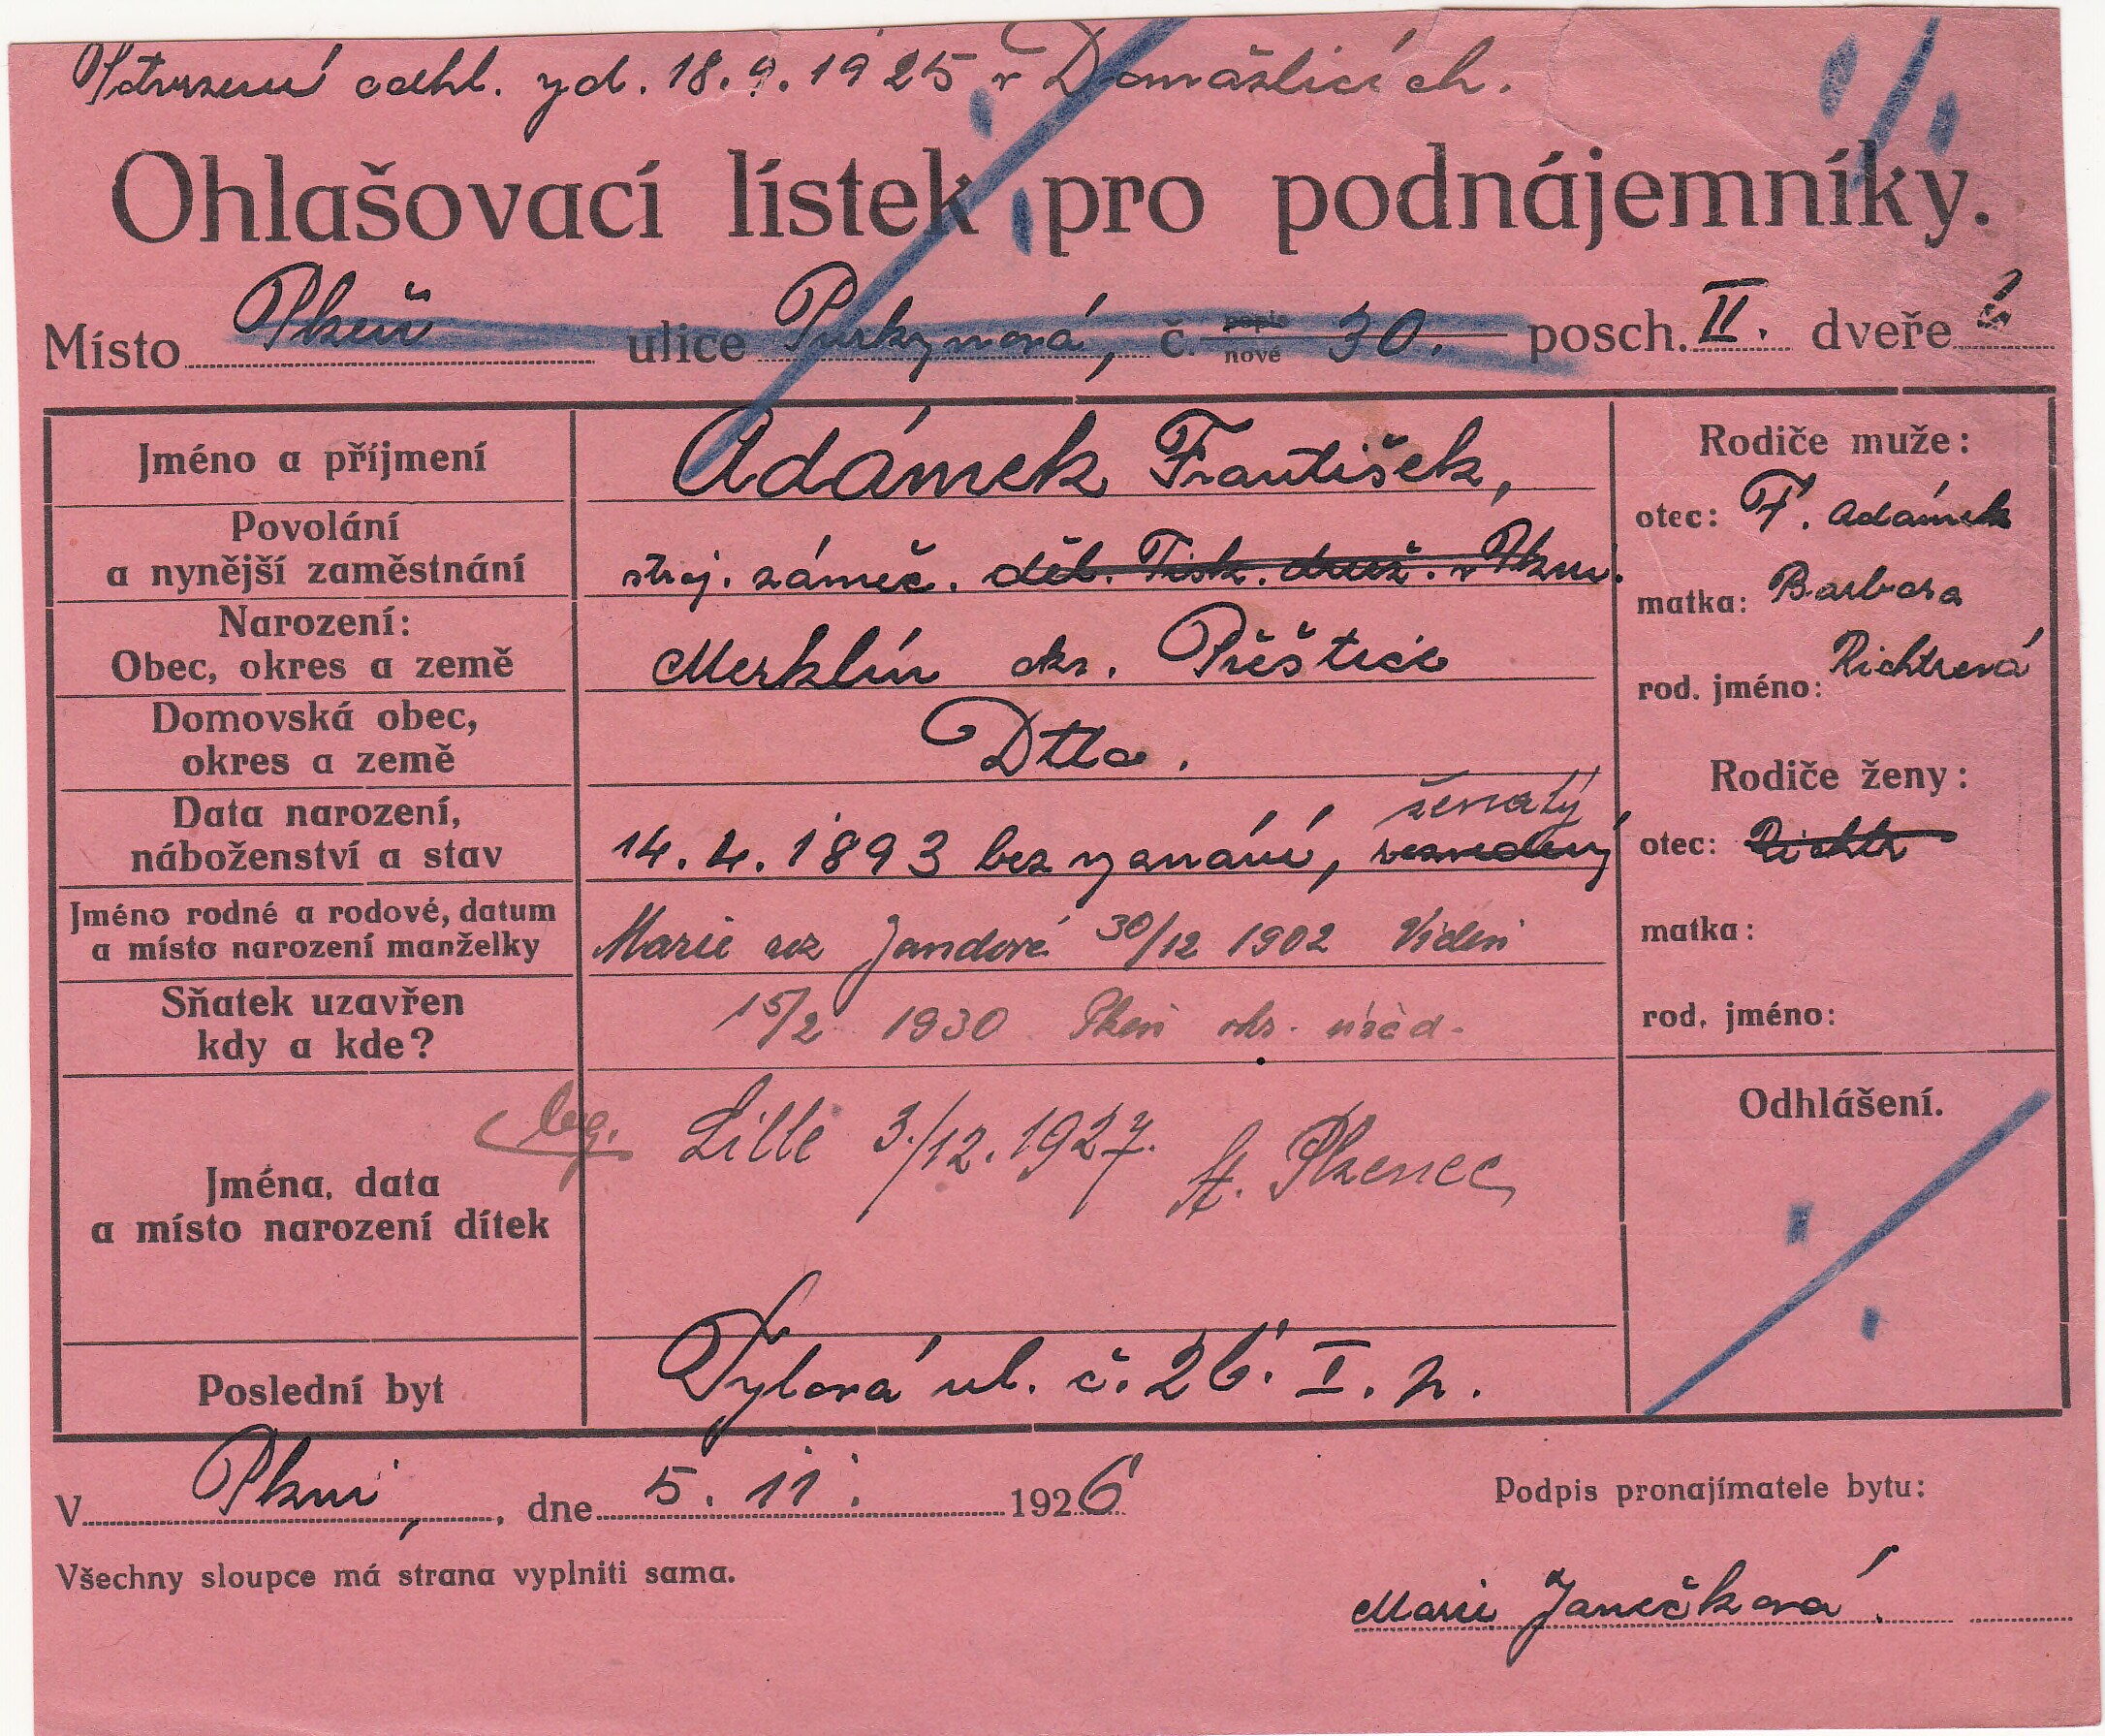 Potvrzení odhl. zd. 18.9.1925 v Domažlicích.
Ohlašovací lístek pro podnájemníky.
Místo Plzeň ulice Purkyňová, č. popis nové 30. posch. II. dveře
Jméno a příjmení Adámek František,
Povolání a nynější zaměstnání stroj. zámeč. děl. Tisk. druž. v Plzni.
Narození: Obec, okres a země Merklín okr. Přěštice
Domovská obec, okres a země Dtto.
ženatý
Data narození, náboženství a stav 14.4.1893 bez vyznání,
Jméno rodné a rodové, datum a místo narození manželky Marie roz Jandové 30/12 1902 Videň
Sňatek uzavřen kdy a kde? 15/2 1930 Plzeň okr. úřad.
Jména, data a místo narození dítek leg. Lilli 3./12.1927. St. Plzenec
Poslední byt Tylová ul. č. 26. I. p.
Rodiče muže:
otec: F. Adámek
matka: Barbora
rod. jméno: Richtrová
Rodiče ženy:
otec: Richtr
matka:
rod. jméno:
Odhlášení.
V Plzni, dne 5. 11. 1926
Podpis pronajímatele bytu:
Všechny sloupce má strana vyplniti sama.
Marie Janečková.